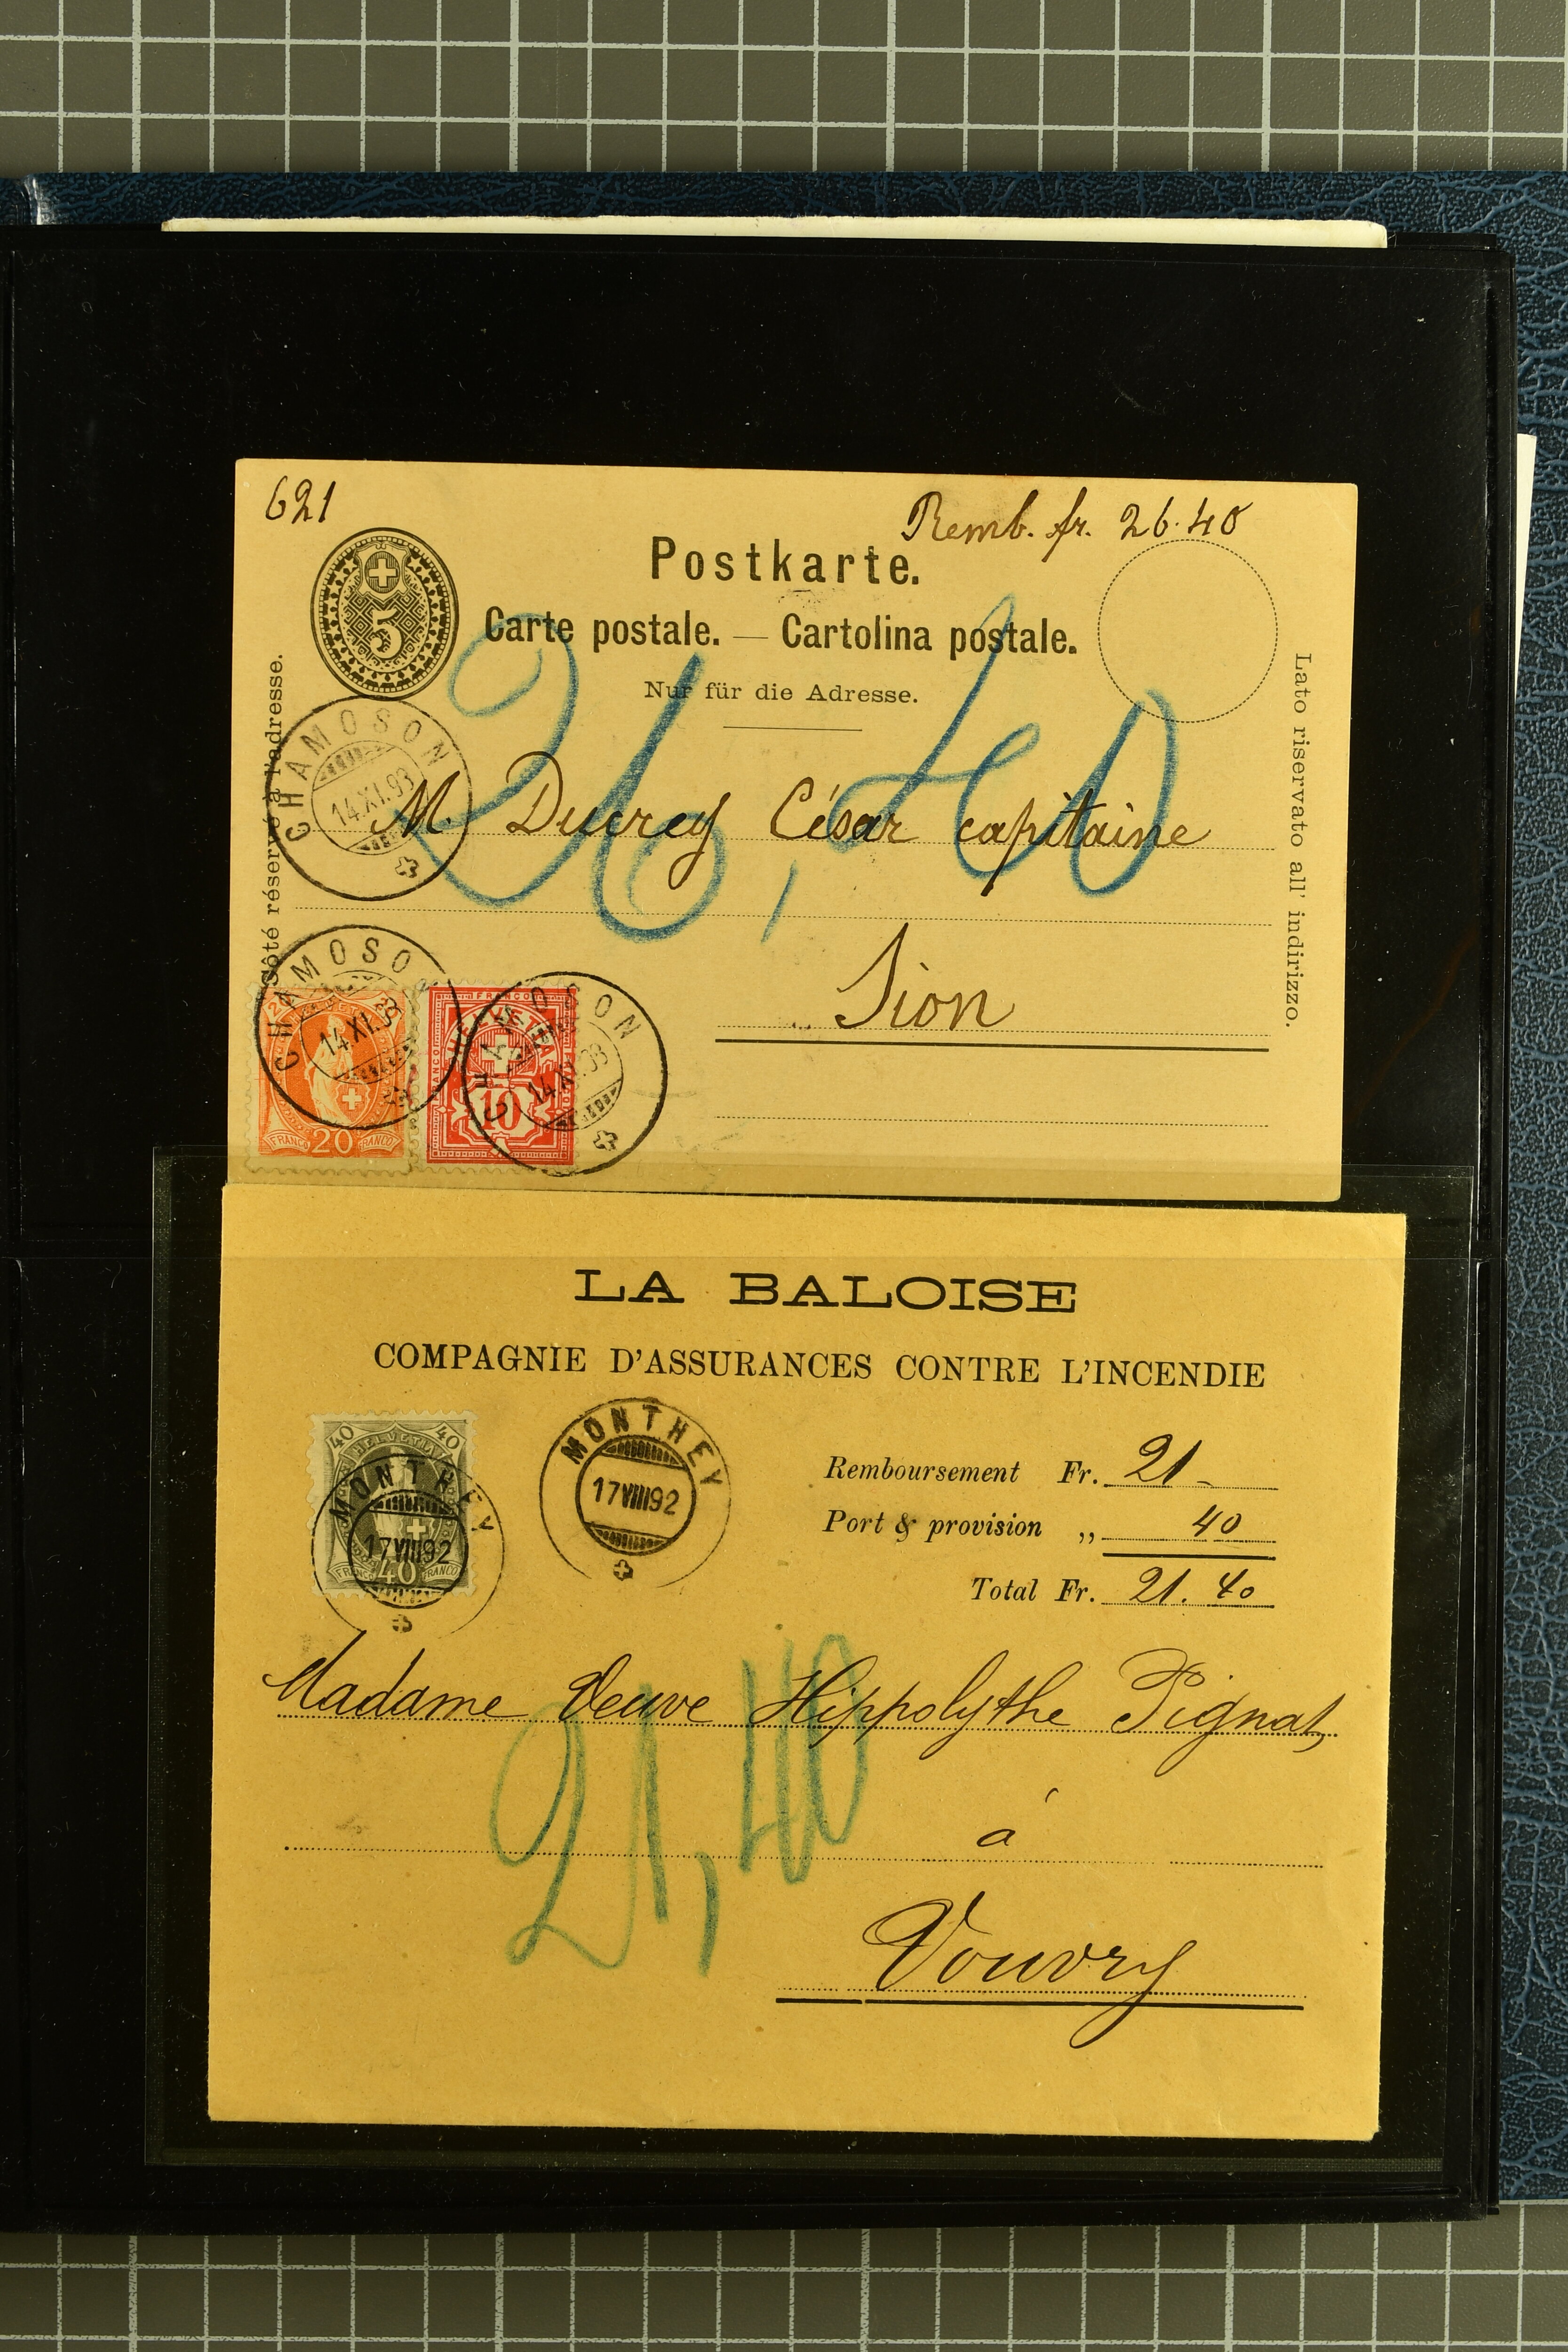 621
Remb. fr. 26.40
Postkarte.
5
Carte postale. — Cartolina postale.
Nur für die Adresse.
Côté réservé à l'adresse.
Lato riservato all' indirizzo.
CHAMOSON
14.XI.93
26,40
M. Ducrey César capitaine
Sion
CHAMOSON
14.XI.93
FRANCO 20 FRANCO
CHAMOSON
14.XI.93
FRANCO
HELVETIA
FRANCO
10
LA BALOISE
COMPAGNIE D'ASSURANCES CONTRE L'INCENDIE
40 HELVETIA 40
MONTHEY
17VIII92
FRANCO 40 FRANCO
MONTHEY
17VIII92
Remboursement Fr. 21 -
Port & provision „ 40
Total Fr. 21.40
Madame Veuve Hippolythe Pignat,
21,40
à
Vouvry